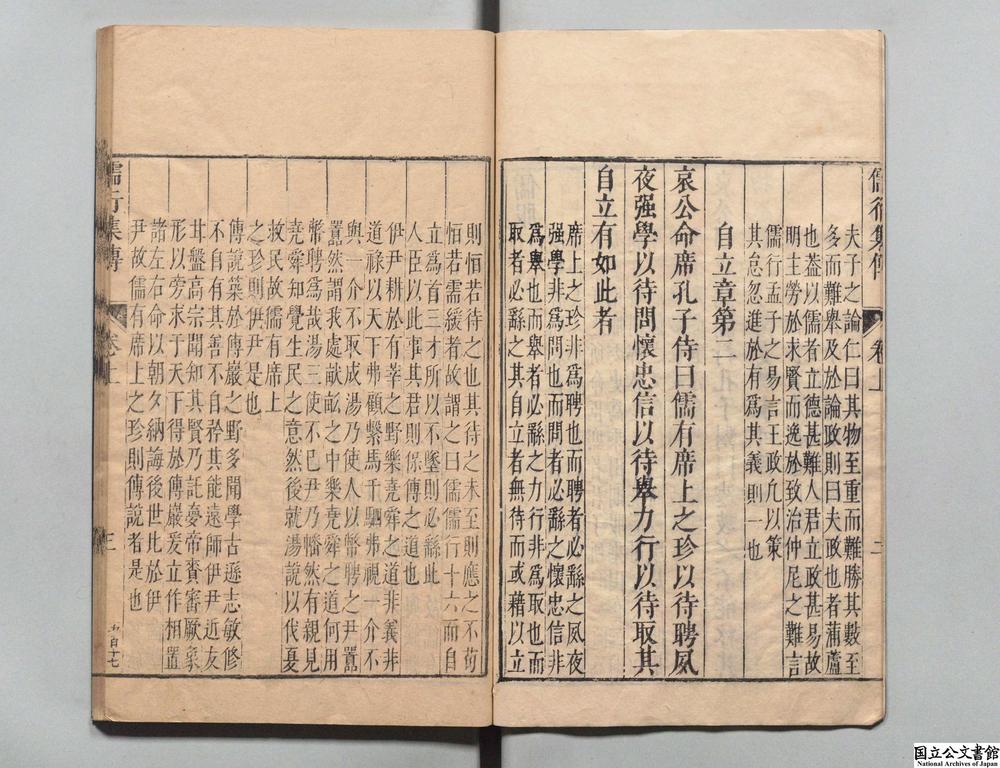 儒行集傳
卷上
二
夫子之論仁曰其物至重而難勝其數至
多而難舉及於論政則曰夫政也者蒲蘆
也葢以儒者立德甚難人君立政甚易故
明主勞於求賢而逸於致治仲尼之難言
儒行孟子之易言王政凢以策
其怠忽進於有爲其義則一也
自立章第二
哀公命席孔子侍曰儒有席上之珍以待聘夙
夜强學以待問懷忠信以待舉力行以待取其
自立有如此者
席上之珍非爲聘也而聘者必繇之夙夜
强學非爲問也而問者必繇之懷忠信非
爲舉也而舉者必繇之力行非爲取也而
取者必繇之其自立者無待而或藉以立
則恒若待之也其待之未至則應之不茍
恒若需緩者故謂之曰儒儒行十六而自
立爲首三才所以不墜則必繇此
人臣以此事其君則保傅之道也
伊尹耕於有莘之野樂堯舜之道非義非
道祿以天下弗顧繫馬千駟弗視一介不
與一介不取成湯乃使人以幣聘之尹囂
囂然謂我處畎畝之中樂堯舜之道何用
幣聘爲哉湯三使不已尹乃幡然有親見
堯舜知覺生民之意然後就湯說以伐夏
救民故儒有席上
之珍則伊尹是也
傅說築於傅巖之野多聞學古遜志敏修
不自有其善不自矜其能遠師伊尹近友
甘盤高宗聞知其賢乃託夢帝賚審厥象
形以旁求于天下得於傅巖爰立作相置
諸左右命以朝夕納誨後世比於伊
尹故儒有席上之珍則傅說者是也
儒行集傳
卷上
三
六百十七
国立公文書館
National Archives of Japan